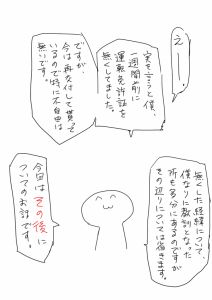 え───…
実を言うと僕、
一週間前に
運転免許証を
無くしてました。
ですが、
今は再交付して貰って
いるので特に不自由は
無いです。
無くした経緯について、
僕なりに教訓となった
所も多分にあるのですが
その辺りについては省きます。
今回はその後に
ついてのお話です。